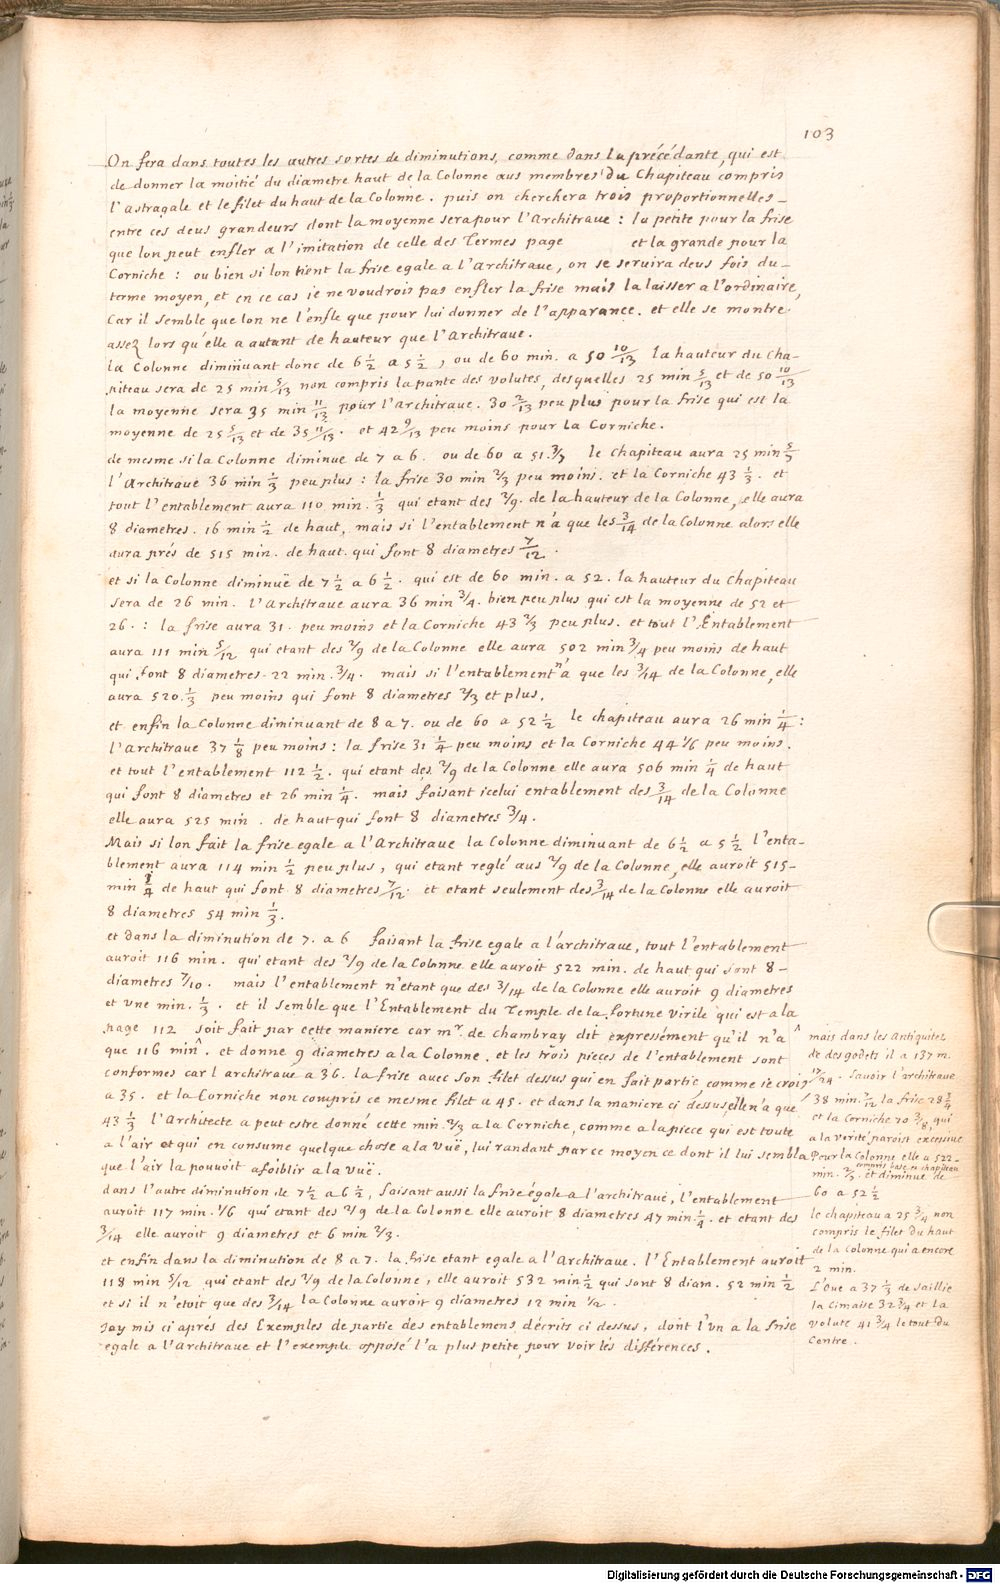 103
On fera dans toutes les autres sortes de diminutions, comme dans la précédante, qui est
de donner la moitié du diametre haut de la Colonne aus membres du Chapiteau compris
l'astragale et le filet du haut de la Colonne. puis on cherchera trois proportionnelles
entre ces deus grandeurs dont la moyenne sera pour l'Architraue : la petite pour la frise
que lon peut enfler a l'imitation de celle des Termes page et la grande pour la
Corniche : ou bien si lon tient la frise egale a l'Architraue, on se seruira deus fois du
terme moyen, et en ce cas ie ne voudrois pas enfler la frise mais la laisser a l'ordinaire,
Car il semble que lon ne l'enfle que pour lui donner de l'apparance. et elle se montre
assez lors qu'elle a autant de hauteur que l'Architraue.
la Colonne diminuant donc de 6 1/2 a 5 1/2, ou de 60 min. a 50 10/13 la hauteur du Cha-
piteau sera de 25 min 5/13 non compris la pante des volutes, desquelles 25 min 5/13 et de 50 10/13
la moyenne sera 35 min 11/13 pour l'architraue. 30 2/13 peu plus pour la frise qui est la
moyenne de 25 5/13 et de 35 11/13. et 42 9/13 peu moins pour la Corniche.
de mesme si la Colonne diminue de 7 a 6. ou de 60 a 51. 3/7 le chapiteau aura 25 min 5/7
l'Architraue 36 min 1/3 peu plus : la frise 30 min 2/3 peu moins. et la Corniche 43 1/3. et
tout l'entablement aura 110 min. 1/3 qui etant des 2/9. de la hauteur de la Colonne, elle aura
8 diametres. 16 min 1/2 de haut, mais si l'entablement n'a que les 3/14 de la Colonne alors elle
aura prés de 515 min. de haut. qui font 8 diametres 7/12.
et si la Colonne diminuë de 7 1/2 a 6 1/2. qui est de 60 min. a 52. la hauteur du Chapiteau
sera de 26 min. l'Architraue aura 36 min 3/4. bien peu plus qui est la moyenne de 52 et
26. : la frise aura 31. peu moins et la Corniche 43 2/3 peu plus. et tout l'Entablement
aura 111 min 5/12 qui etant des 2/9 de la Colonne elle aura 502 min 3/4 peu moins de haut
qui font 8 diametres. 22 min. 3/4. mais si l'entablement n'a que les 3/14 de la Colonne, elle
aura 520. 1/3 peu moins qui font 8 diametres 2/3 et plus.
et enfin la Colonne diminuant de 8 a 7. ou de 60 a 52 1/2 le chapiteau aura 26 min 1/4 :
l'Architraue 37 1/8 peu moins : la frise 31 1/4 peu moins et la Corniche 44 1/6 peu moins.
et tout l'entablement 112 1/2. qui etant des 2/9 de la Colonne elle aura 506 min 1/4 de haut
qui font 8 diametres et 26 min 1/4. mais faisant icelui entablement des 3/14 de la Colonne
elle aura 525 min. de haut qui font 8 diametres 3/4.
Mais si lon fait la frise egale a l'Architraue la Colonne diminuant de 6 1/2 a 5 1/2 l'enta-
blement aura 114 min 1/2 peu plus, qui etant reglé aus 2/9 de la Colonne, elle auroit 515
min 1/4 de haut qui font 8 diametres 7/12. et etant seulement des 3/14 de la Colonne elle auroit
8 diametres 54 min 1/3.
et dans la diminution de 7. a 6 faisant la frise egale a l'architraue, tout l'entablement
auroit 116 min. qui etant des 2/9 de la Colonne elle auroit 522 min. de haut qui font 8
diametres 7/10. mais l'entablement n'etant que des 3/14 de la Colonne elle auroit 9 diametres
et vne min. 1/3. et il semble que l'Entablement du Temple de la fortune virile qui est a la
page 112 soit fait par cette maniere car mr. de Chambray dit expressément qu'il n'a
que 116 min^. et donne 9 diametres a la Colonne. et les trois pieces de l'entablement sont
conformes car l architraue a 36. la frise avec son filet dessus qui en fait partie comme ie croi
a 35. et la Corniche non compris ce mesme filet a 45. et dans la maniere ci dessus elle n'a que
43 1/3 l'Architecte a peut estre donné cette min. 2/3 a la Corniche, comme a la piece qui est toute
a l'air et qui en consume quelque chose a la vuë, lui randant par ce moyen ce dont il lui sembla
que l'air la pouvoit afoiblir a la vuë.
dans l'autre diminution de 7 1/2 a 6 1/2, faisant aussi la frise égale a l'architraue, l'entablement
auroit 117 min. 1/6 qui etant des 2/9 de la Colonne elle auroit 8 diametres 47 min. 1/4. et etant des
3/14 elle auroit 9 diametres et 6 min. 2/3.
et enfin dans la diminution de 8 a 7. la frise etant egale a l'Architraue. l'Entablement auroit
118 min 5/12 qui etant des 2/9 de la Colonne, elle auroit 532 min 1/2 qui sont 8 diam. 52 min 1/2
et si il n'etoit que des 3/14 la Colonne auroit 9 diametres 12 min 1/2.
Jay mis ci aprés des Exemples de partie des entablemens décrits ci dessus, dont l'vn a la frise
egale a l'Architraue et l'exemple opposé l'a plus petite, pour voir les différences.
mais dans les Antiquitez
de des godets il a 137 m.
17/24. Sauoir l'architraue
38 min. 7/12 la frise 28 3/4
et la Corniche 70 3/8, qui
a la verité paroist excessiue
Pour la Colonne elle a 522
compris base et chapiteau
min. 2/3. et diminue de
60 a 52 1/2
le chapiteau a 25 3/4 non
compris le filet du haut
de la Colonne qui a encore
2 min.
L'Oue a 37 1/3 de saillie
la Cimaise 32 3/4 et la
volute 41 3/4 le tout du
Centre.
Digitalisierung gefördert durch die Deutsche Forschungsgemeinschaft - DFG